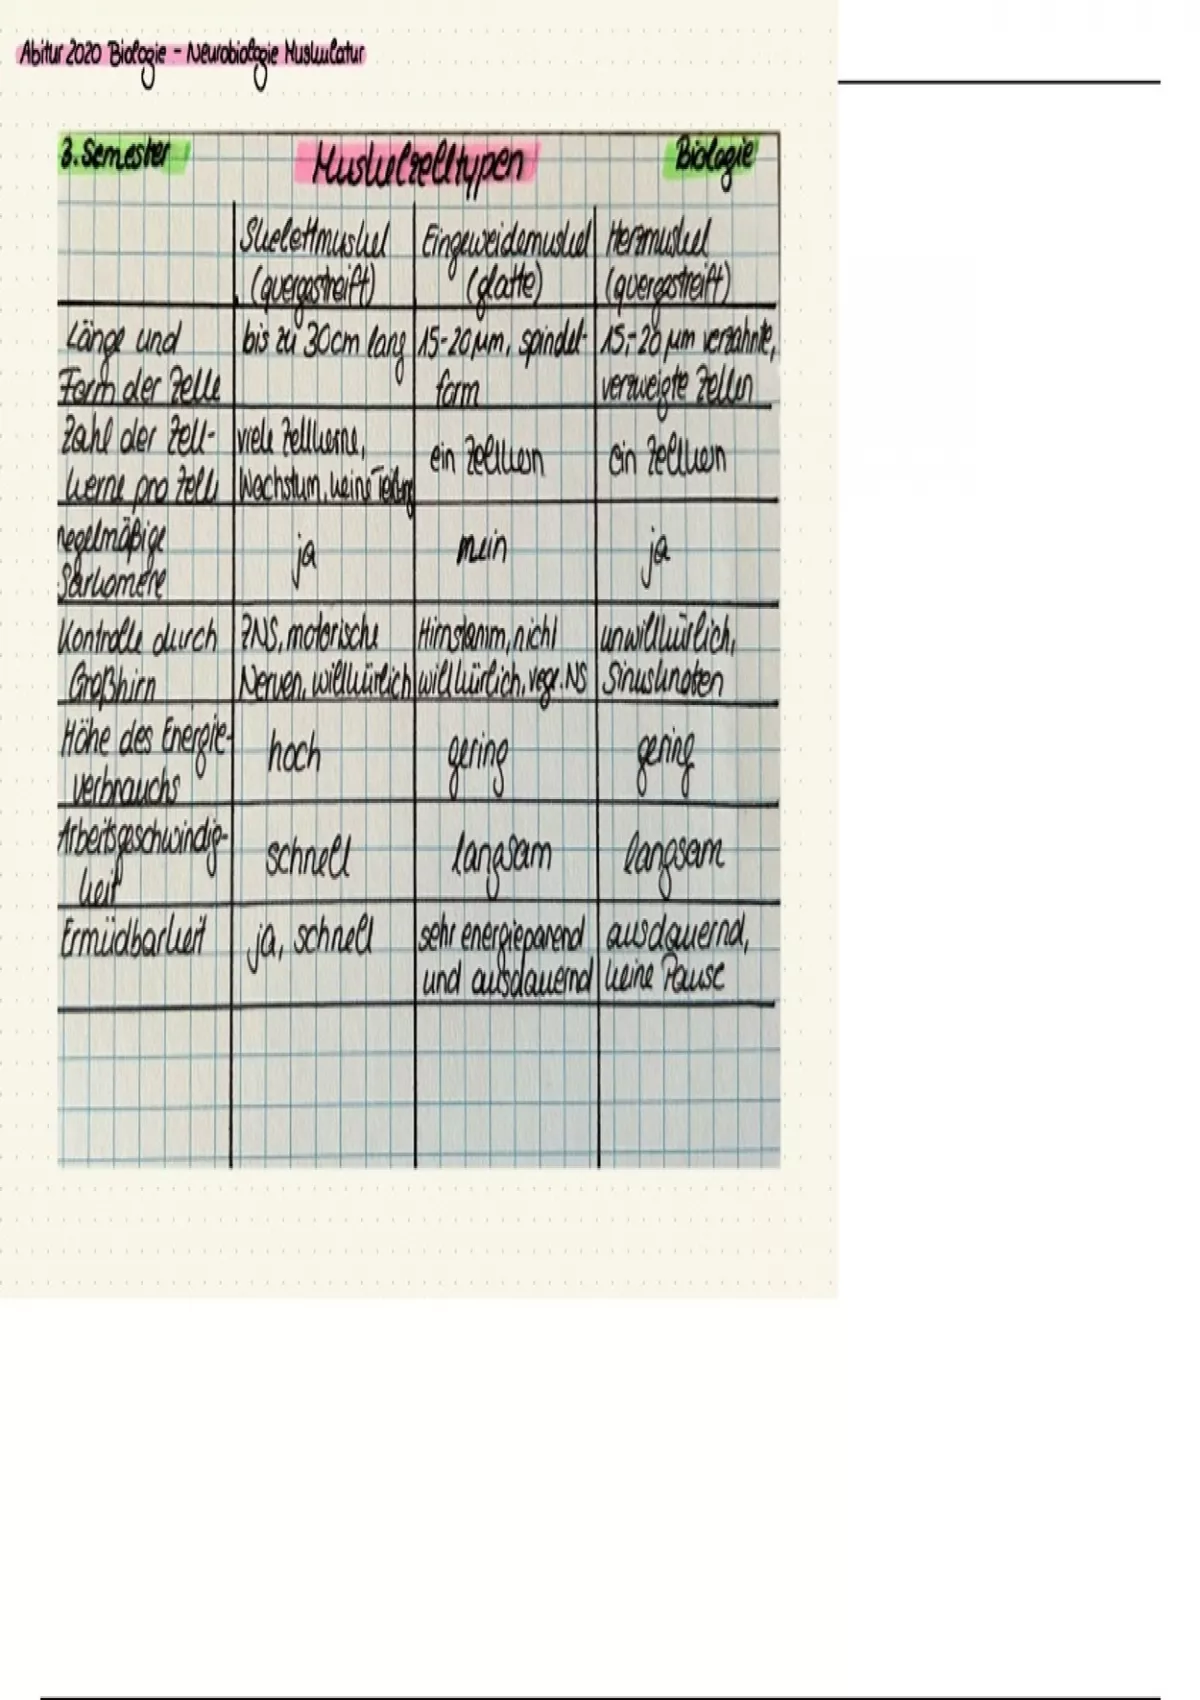 Abitur 2020 Biologie - Neurobiologie Muskulatur
3. Semester Muskelzelltypen Biologie
Skelettmuskel Eingeweidemuskel Herzmuskel
(quergestreift) (glatte) (quergestreift)
Länge und bis zu 30cm lang 15-20 µm, spindel- 15-20 µm verzahnte,
Form der Zelle form verzweigte Zellen
Zahl der Zell- viele Zellkerne, ein Zellkern ein Zellkern
kerne pro Zelle Wachstum, keine Teilung
regelmäßige ja nein ja
Sarkomere
Kontrolle durch ZNS, motorische Hirnstamm, nicht unwillkürlich,
Großhirn Nerven, willkürlich willkürlich, veg. NS Sinusknoten
Höhe des Energie- hoch gering gering
verbrauchs
Arbeitsgeschwindig- schnell langsam langsam
keit
Ermüdbarkeit ja, schnell sehr energieparend ausdauernd,
und ausdauernd keine Pause